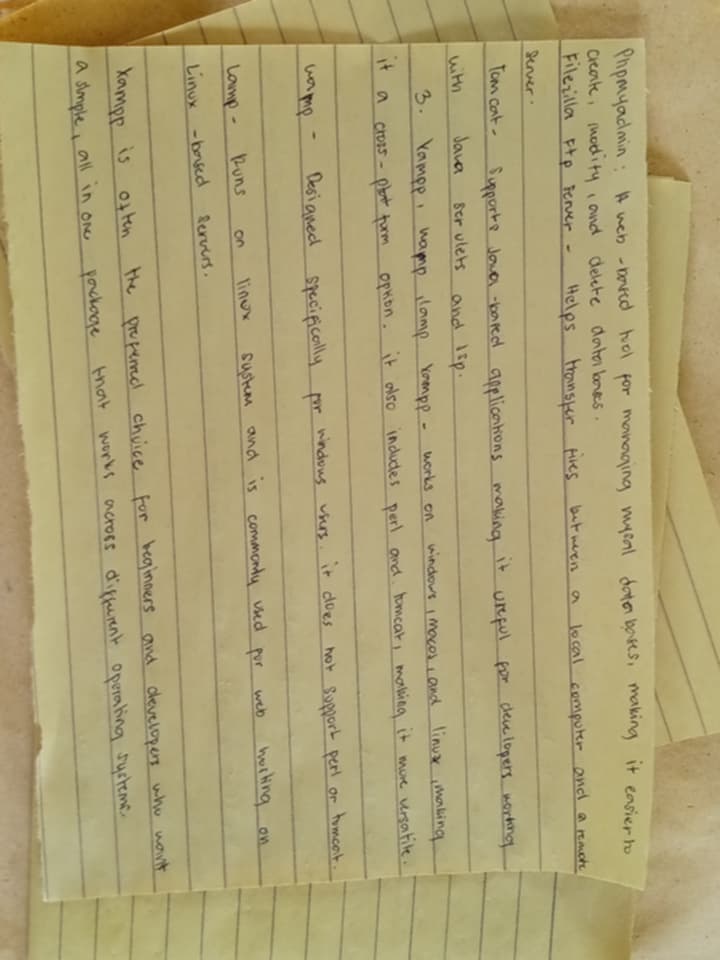 Phpmyadmin: A web-based tool for managing mysql databases, making it easier to
create, modify, and delete databases.
Filezilla Ftp server - Helps transfer files between a local computer and a remote
server.
Tomcat - Supports Java-based applications making it useful for developers working
with Java servlets and Jsp.
3. Xampp, wamp, lamp Xampp - works on windows, macos, and linux, making
it a cross-platform option. it also includes perl and tomcat, making it more versatile.
wamp - Designed specifically for windows users. it does not support perl or tomcat.
Lamp - Runs on linux system and is commonly used for web hosting on
Linux-based servers.
Xampp is often the preferred choice for beginners and developers who want
a simple, all in one package that works across different operating systems.